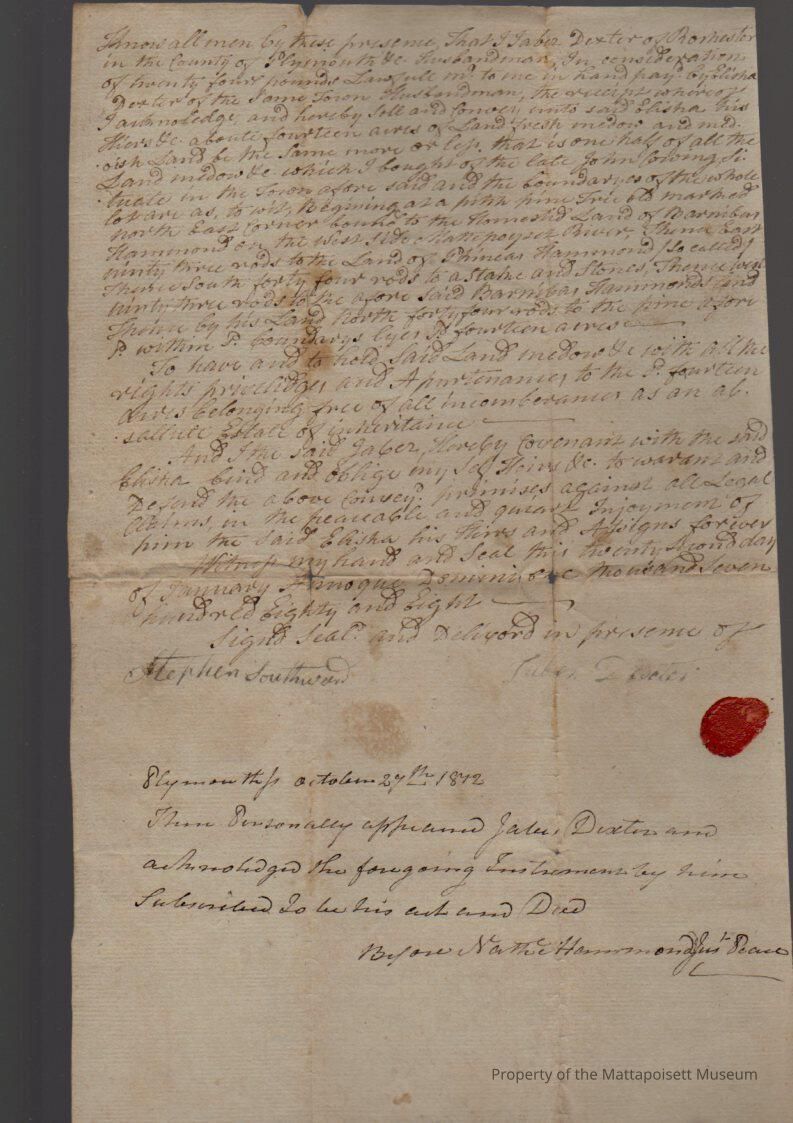 Know all men by these presence, That I Jabez Dexter of Rochester
in the County of Plymouth &c Husbandman, In consideration
of twenty four pounds Lawfull m.y to me in hand pay.d by Elisha
Dexter of the Same Town Husbandman, the receipt whereof
I acknoledge, and hereby Sell and Convey unto said Elisha his
Hiers &c. aboute fourteen acres of Land fresh medow and med-
-oish Land be the Same more or less, that is one half of all the
Land medow &c which I bought of the late John Si-
-tuate in the Town afore said and the boundaryes of the whole
lot are as, to wit, Begining at a pitch pine Tree old marked
north East Corner bound to the Homested Land of Barnibas
Hammond on the west Side Mattepoyset River, Thence East
ninty three rods to the Land of Phineas Hammond (So called)
Thence South forty four rods to a Stake and Stones, Thence west
ninty three rods to the afore said Barnibas Hammonds and
Thence by his Land North forty four rods to the pine afore
S.d within S.d boundarys lyes S.d fourteen acres
To have and to hold Said Land medow &c with all the
rights priveledges and Apurtenances to the S.d fourteen
acres belonging free of all incomberances as an ab-
-sellute Estate of inheritance
And I the said Jabez, Hereby Covenant with the said
Elisha bind and oblige my Self Heirs &c. to warant and
Defend the above Convey.d premises against all Legal
Claims, in the peaceable and Injoyment of
him the Said Elisha his Heirs and Assigns forever
Witness my hand and Seal this twenty Second day
of January Annoque Domini one thousand Seven
hundred Eighty and Eight
Sign'd Seal.d and Deliverd in presence of
Stephen Southword Jabez Dexter
Plymouth ss october 27th 1812
Then Personally appeared Jabez Dexter and
acknoledged the foregoing Instrement by him
Subscribed to be his act and Deed
Before Nathl Hammond Jus.t Peace
Property of the Mattapoisett Museum